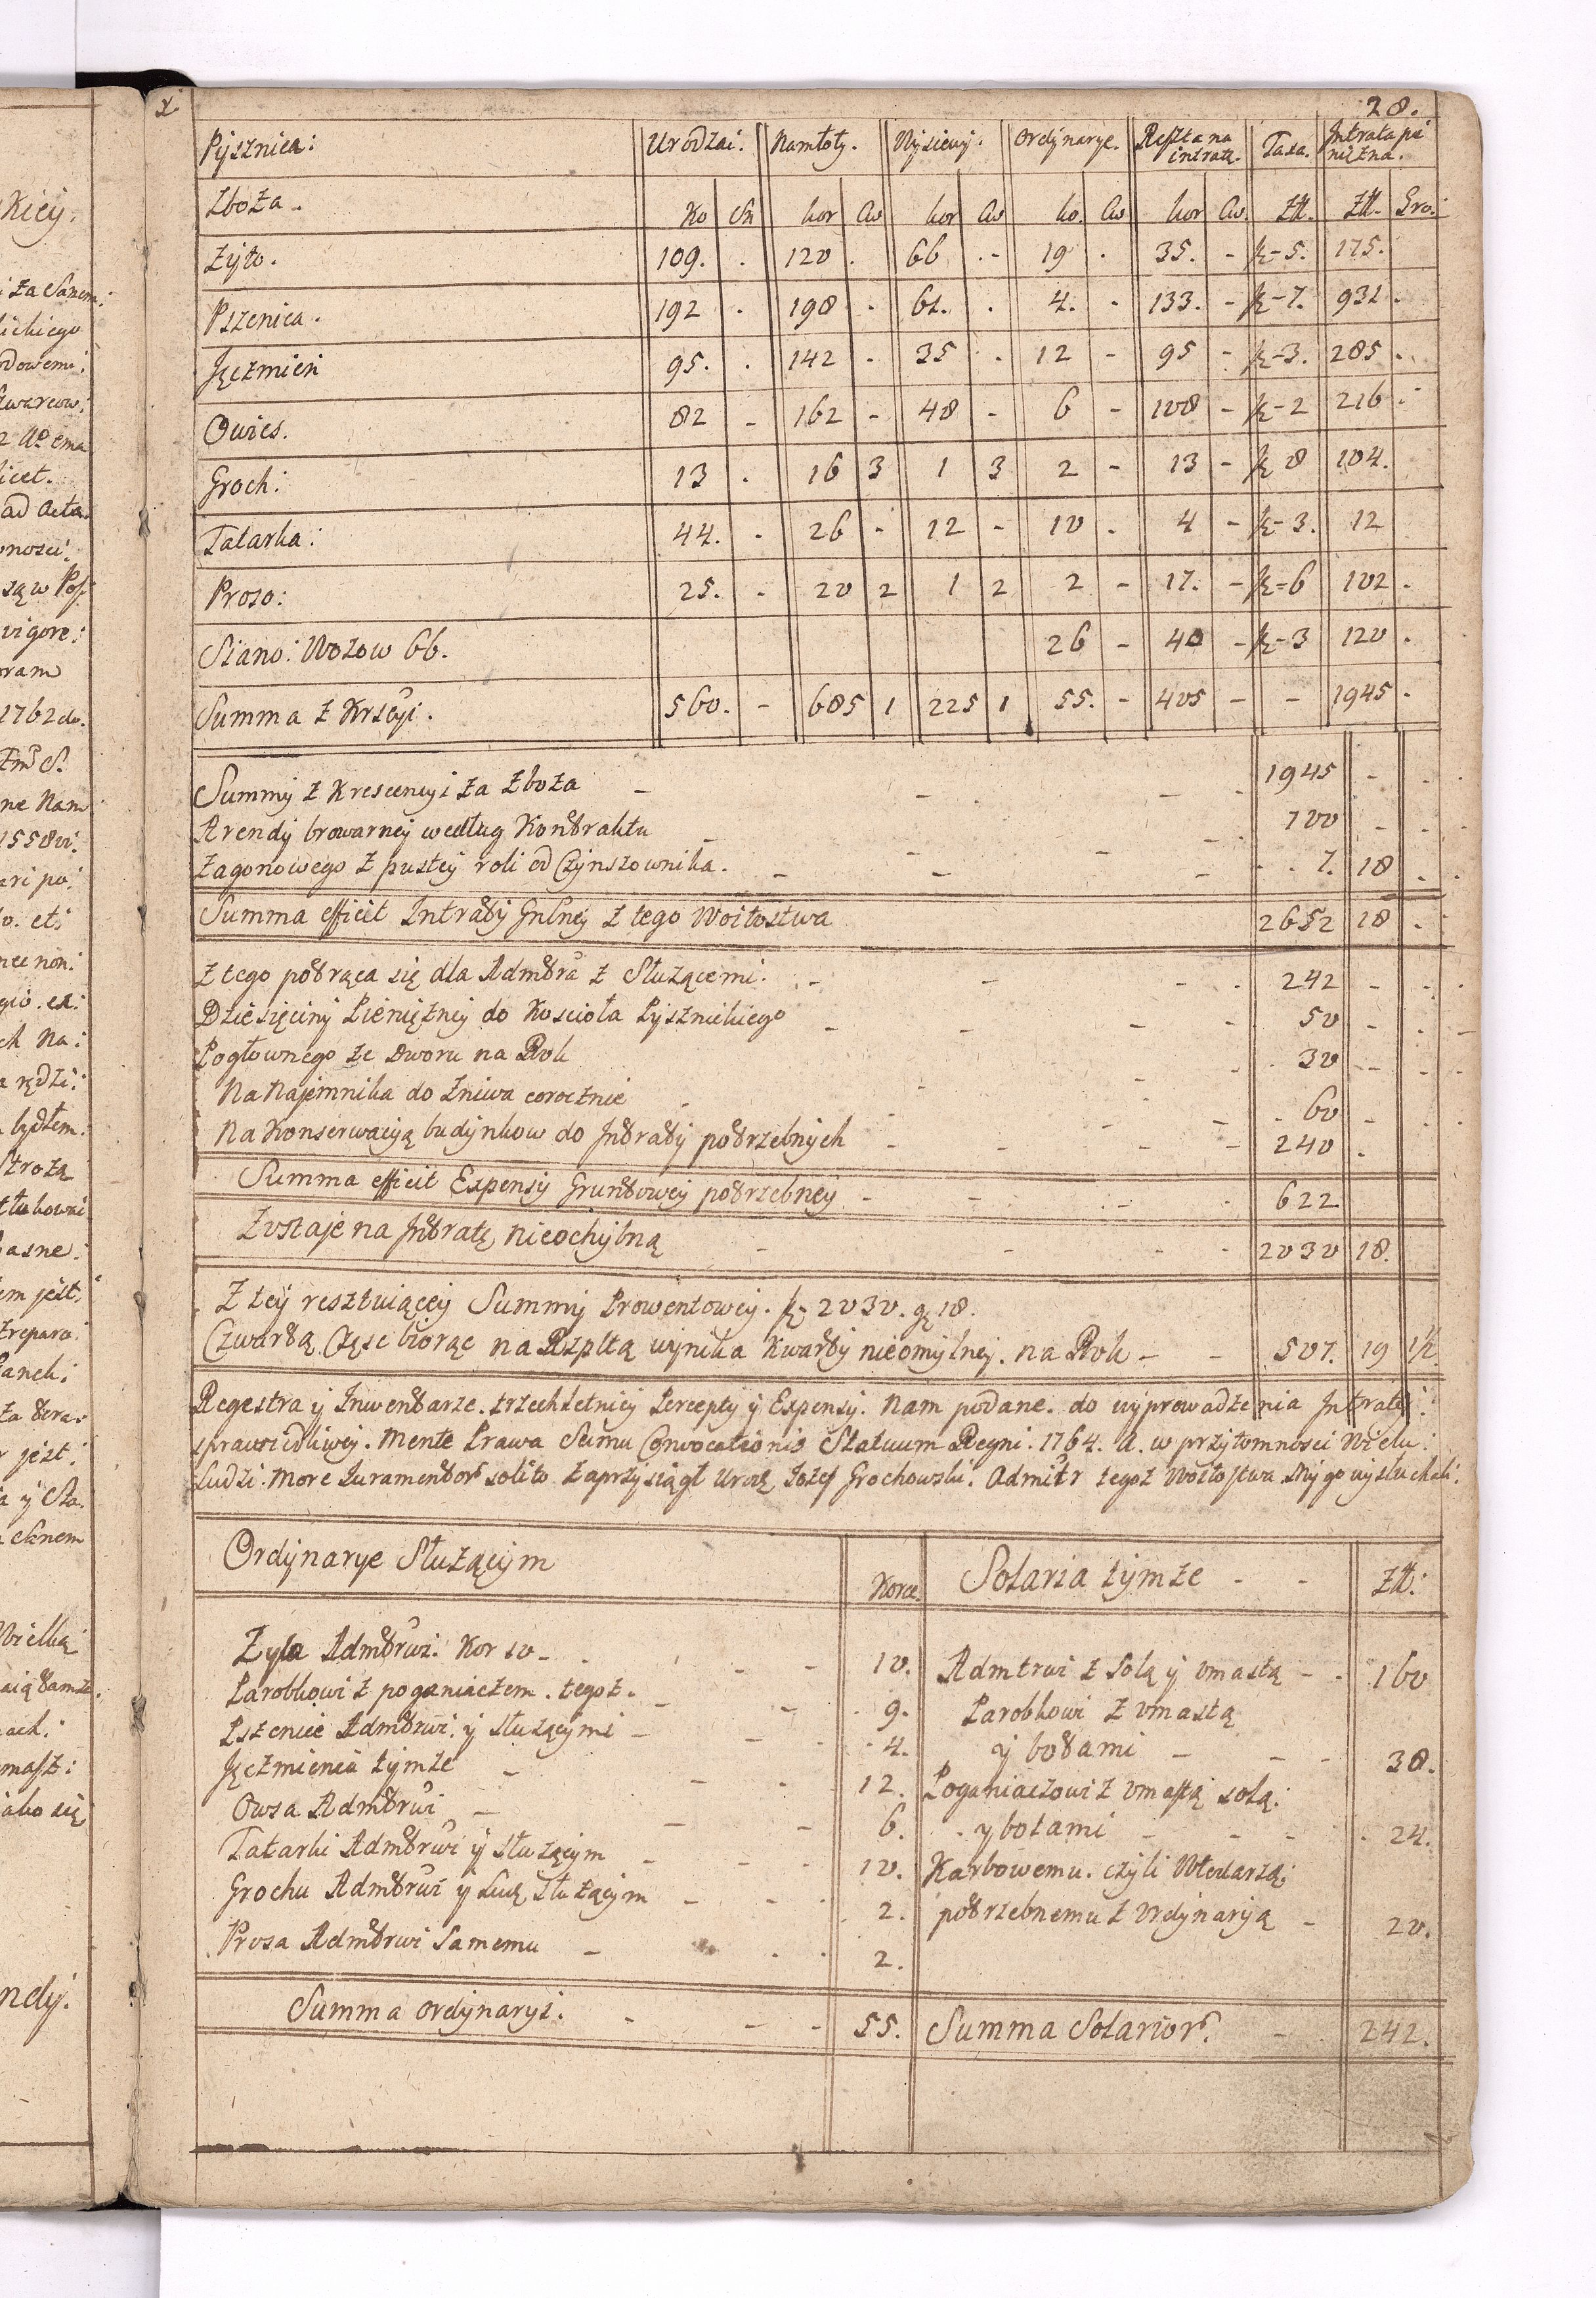 28.
Pysznica: Urodzai. Namłoty. Wysiewy. Ordynarye. Reszta na intratę. Taxa. Intrata pieniężna.
Zboża. Ko Sn kor Ćw kor Ćw ko. Ćw kor Ćw. Złł. Złł. Gro:
Żyto. 109. . 120 . 66 . - 19 . 35. - fl - 5. 175.
Pszenica. 192 . 198 . 61. . 4. . 133. - fl - 7. 931.
Jęczmień 95. . 142 - 35 . 12 - 95 - fl - 3. 285.
Owies. 82 - 162 - 48 - 6 - 108 - fl - 2 216.
Groch: 13 . 16 3 1 3 2 - 13 - fl 8 104.
Tatarka: 44. - 26 - 12 - 10 . 4 - fl - 3. 12
Proso: 25. - 20 2 1 2 2 - 17. - fl - 6 102.
Siano: Wozow 66. 26 - 40 - fl - 3 120.
Summa z Krscyi. 560. - 685 1 225 1 55. - 405 - - 1945.
Summy z Krescencyi za Zboża - 1945 -
Arendy browarney według Kontraktu - 700 -
Zagonowego z pustey roli od Czynszownika. - 7. 18
Summa efficit Intraty Gnlney z tego Woitostwa 2652 18
Z tego potrąca się dla Admtra z Służącemi. 242 -
Dziesięciny Pieniężney do Kościoła Pysznickiego 50 -
Pogłownego ze Dworu na Rok 30 -
Na Najemnika do Żniwa corocznie 60 -
Na Konserwacyą budynkow do Intraty potrzebnych 240.
Summa efficit Expensy Gruntowey potrzebney 622
Zostaje na Intratę nieochybną 2030 18.
Z tey resztuiącey Summy Prowentowey. fl 2030. gr 18.
Czwartą Częsc biorąc na Rzpltą wynika Kwarty nieomylney. na Rok - 507. 19 1/2
Regestra y Inwentarze. trzechletniey Percepty y Expensy. Nam podane. do wyprowadzenia Intraty:
sprawiedliwey. Mente Prawa Seimu Convocationis Statuum Regni. 1764. A. w przytomnosci Wielu:
Ludzi. More Juramentor solito zaprzysiągł Urod Jozef Grochowski. Admitr tegoż Woitostwa My go wysłuchali.
Ordynarye Służącym Korce. Solaria tymże - - Złł:
Zyta Admtrwi: Kor 10 - 10. Admtrwi z solą y omastą - 160
Parobkowi z poganiaczem. tegoż. - 9. Parobkowi z omastą
Pszenice Admtrwi. y służącymi - 4. y botami - 38.
Jęczmienia tymże - 12. Poganiaczowi z omastą solą:
Owsa Admtrwi - 6. y botami - 24.
Tatarki Admtrwi y służącym - 10. Karbowemu. czyli Włodarzą:
Grochu Admtrwi y służącym - 2. potrzebnemu z Ordynaryą - 20.
Prosa Admtrwi Samemu - 2.
Summa ordynaryi. - 55. Summa Solarior. - 242.